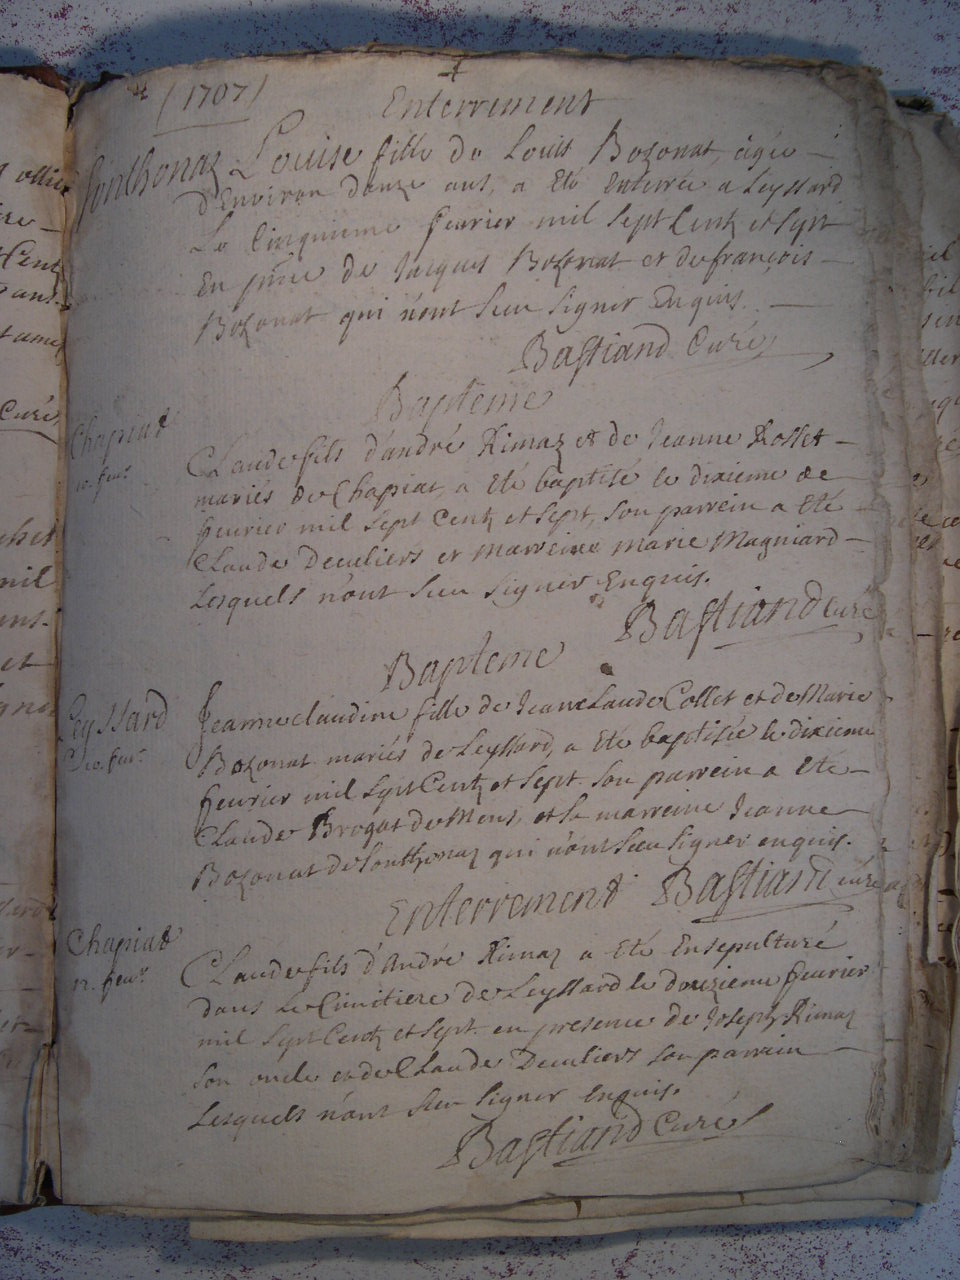 (1707)
Enterrement
Sonthonaz Louise fille de Louis Bozonat, agée
d'Environ douze ans, a Eté Enterrée a Leyssard
Le Cinquieme fevrier mil sept Centz et sept
En pnce de Jacques Bozonat et de françois
Bozonat qui n'ont sceu signer Enquis.
Bastiand Curé
Bapteme
Chapiat
10. feur.
Claude fils d'andré Rimaz et de Jeanne Rosset
mariés de Chapiat, a Eté baptisé le dixieme de
fevrier mil sept Centz et sept, son parrein a Eté
Claude Deculiers et marreine marie Magniard
Lesquels n'ont sceu signer Enquis.
Bastiand curé
Bapteme
Leyssard
10. feur.
Jeanneclaudine fille de JeanClaude Collet et de Marie
Bozonat mariés de Leyssard, a Eté baptisée le dixieme
fevrier mil sept Centz et sept. son parrein a Eté
Claude Brogat de Mens, et sa marreine Jeanne
Bozonat de Sonthonaz qui n'ont sceu signer enquis.
Bastiand curé
Enterrement
Chapiat
12. feur.
Claude fils d'André Rimaz a Eté Ensepulturé
dans Le Cimitiere de Leyssard le douzieme fevrier
mil sept Centz et sept en presence de Joseph Rimaz
son oncle et de Claude Deculiers son parrain
Lesquels n'ont sceu signer enquis.
Bastiand Curé